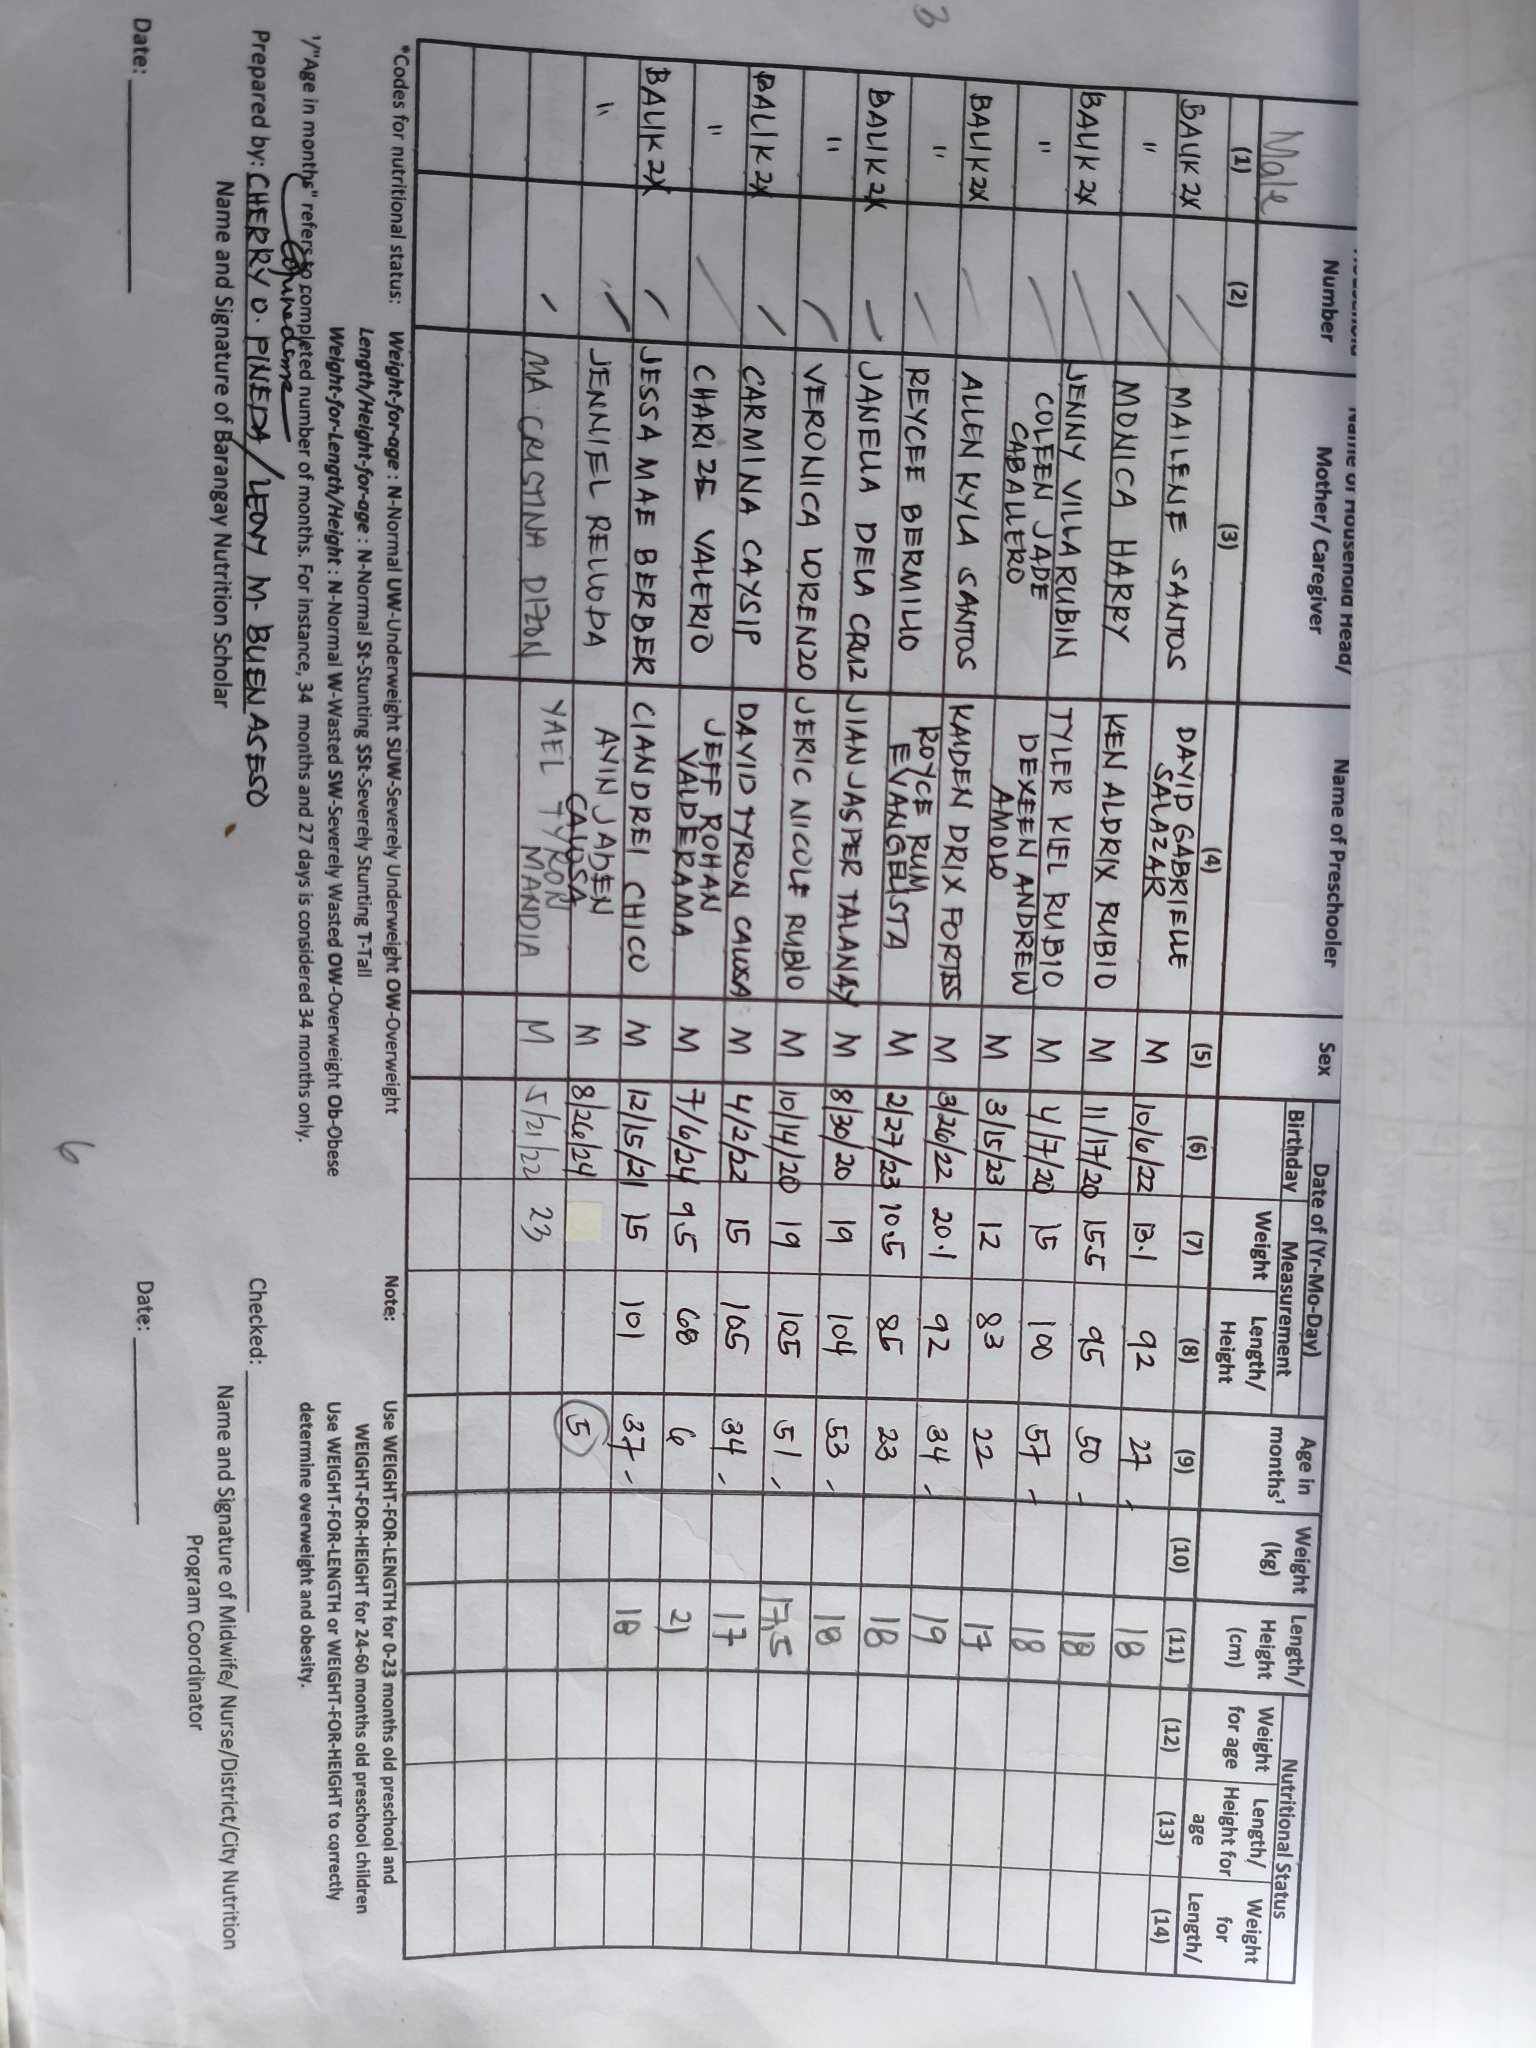 Number
Name of Household Head/
Mother/ Caregiver
Name of Preschooler
Sex
Date of (Yr-Mo-Day)
Birthday
Measurement
Weight
Length/
Height
Age in
months¹
Weight
(kg)
Length/
Height
(cm)
Nutritional Status
Weight
for age
Length/
Height for
age
Weight
for
Length/
Male
(1) (2) (3) (4) (5) (6) (7) (8) (9) (10) (11) (12) (13) (14)
BALIK 2X MAILENE SANTOS DAVID GABRIELLE SALAZAR M 10/6/22 13.1 92 27 18
" MONICA HARRY KEN ALDRIX RUBIO M 11/17/20 15.5 95 50 18
BALIK 2X JENNY VILLARUBIN TYLER KIEL RUBIO M 4/7/20 15 100 57 18
" COLEEN JADE CABALLERO DEXEEN ANDREW AMOLO M 3/15/23 12 83 22 17
BALIK 2X ALLEN KYLA SANTOS KAIDEN DRIX FORTES M 3/26/22 20.1 92 34 19
" REYCEE BERMILLO ROYCE RUM EVANGELISTA M 2/27/23 10.5 85 23 18
BALIK 2X JANELLA DELA CRUZ JIAN JASPER TALANAY M 8/30/20 19 104 53 18
" VERONICA LORENZO JERIC NICOLE RUBIO M 10/14/20 19 105 51 17.5
BALIK 2X CARMINA CAYSIP DAVID TYRON CALOSA M 4/2/22 15 105 34 17
" CHARIZE VALERIO JEFF ROHAN VALDERAMA M 7/6/24 9.5 68 6 21
BALIK 2X JESSA MAE BERBER CIANDREI CHICO M 12/15/21 15 101 37 18
" JENNIEL RELLODA AVIN JADEN CALOSA M 8/26/24 5
MA CRISTINA DIZON YAEL TYRON MANDIA M 5/21/22 23
3
*Codes for nutritional status: Weight-for-age : N-Normal UW-Underweight SUW-Severely Underweight OW-Overweight
Length/Height-for-age : N-Normal St-Stunting SSt-Severely Stunting T-Tall
Weight-for-Length/Height : N-Normal W-Wasted SW-Severely Wasted OW-Overweight Ob-Obese
¹/"Age in months" refers to completed number of months. For instance, 34 months and 27 days is considered 34 months only.
Note: Use WEIGHT-FOR-LENGTH for 0-23 months old preschool and
WEIGHT-FOR-HEIGHT for 24-60 months old preschool children
Use WEIGHT-FOR-LENGTH or WEIGHT-FOR-HEIGHT to correctly
determine overweight and obesity.
Prepared by: CHERRY O. PINEDA/LEONY M. BUENASESO
Name and Signature of Barangay Nutrition Scholar
Checked:
Name and Signature of Midwife/ Nurse/District/City Nutrition
Program Coordinator
Date:
Date:
6